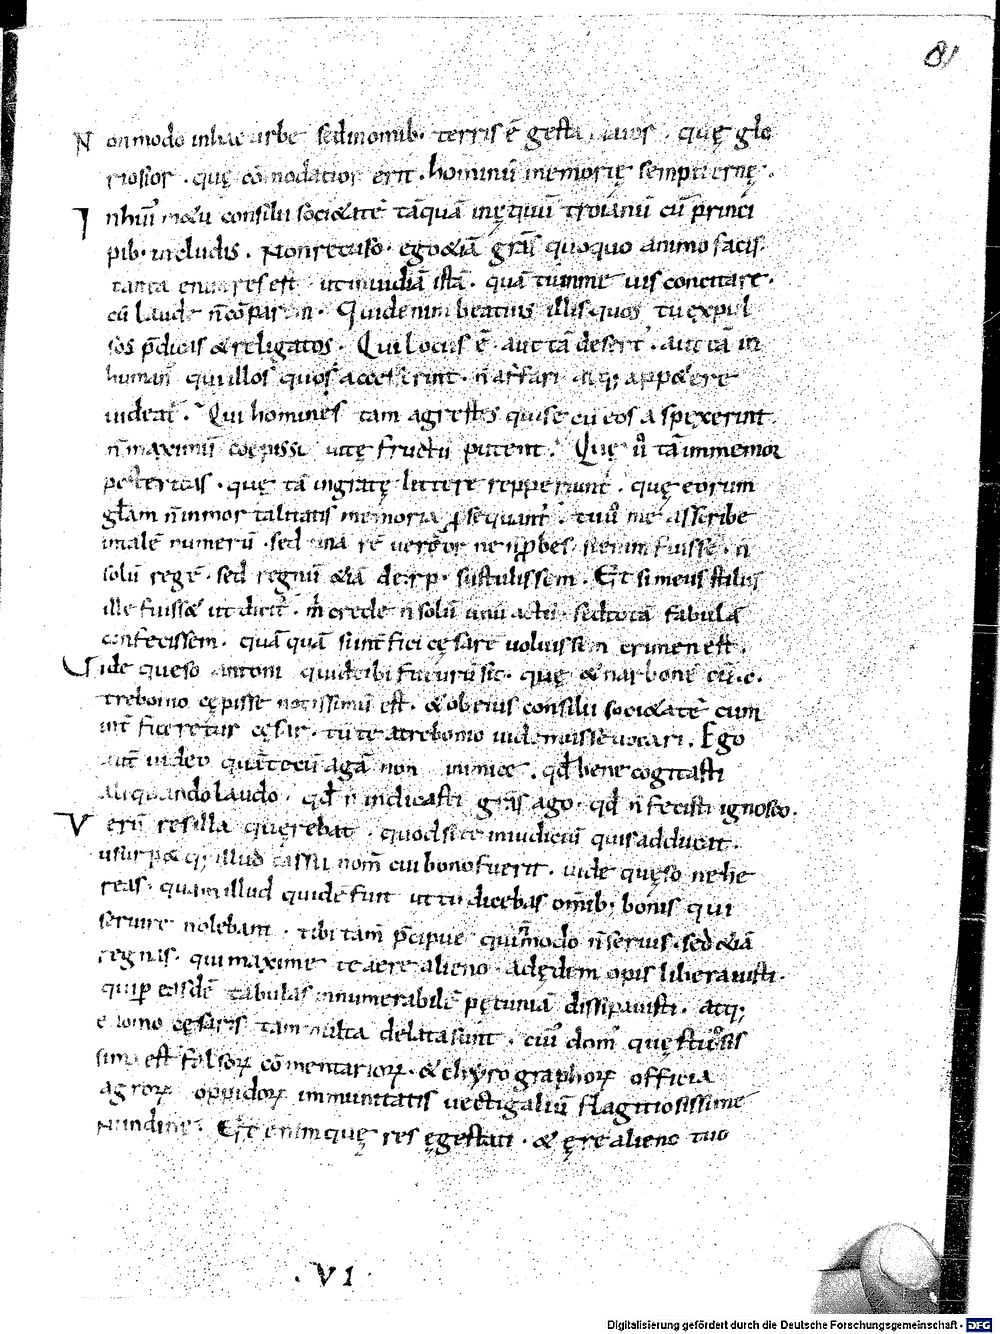 81
N on modo in hac urbe sed in omnib· terris ē gesta maior · quę glo
riosior · quę cōmodatior erit · hominū memorię sempiternę ·
I n huiꝰ me& consilii soci&atē tāquā in ęquū troianū cū princi
pib· includis · Non recuso · ego &iā grās quoquo animo facis·
tanta enim res est ut inuidiā istā · quā tu in me uis concitare ·
cū laude n̄ cōparem · Quid enim beatius illis quos tu expul
sos p̄dicas & religatos · Qui locus ē aut tā desert᾽ · aut tā in
human᾽ qui illos quos accesserint · n̄ affari atq; app&ere
uideat᾽ · Qui homines tam agrestes qui se cū eos aspexerint
n̄ maximū coepissi uitę fructū putent · Quę ů tā immemor
posteritas · quę tā ingratę littere repperiunt᾽ · quę eorum
gl̄am n̄ inmortalitatis memoria p̄sequant᾽ · tu ů me asscribe
in talē numerū · sed unā rē uereor ne n̄ p̄bes · si enim fuissē · n̄
solū regē · sed regnū &iā de·r·p· sustulissem · Et si meus stilus
ille fuiss& ut dicit᾽ · m̄ crede n̄ solū unū actū · sed totā fabulā
confecissem · quā quā si int̄fici cęsarē uoluissem crimen est ·
U ide queso antoni quid tibi futurū sit · quę & narbone cū ·c·
trebonio cępisse notissimū est · & ob eius consilii soci&atē cum
int̄ficeretur cęsar · tū te a trebonio uidemus seuocari · Ego
aut̄ uideo quā tecū agā non inimice · qđ bene cogitasti
aliquando laudo · qđ n̄ indicasti grās ago · qđ n̄ fecisti ignosco ·
V erū res illa quęrebat · quod si te in iudiciū quis adducat ·
usurp&q; illud cassii nom̄ cui bono fuerit · uide quęso ne he
reas · quam illud quidē fuit ut tu dicebas om̄ib; bonis qui
seruire nolebant · tibi tam̄ p̄cipue qui n̄ modo n̄ seruis · sed &iā
regnas · qui maxime te aere alieno · ad ędem opis liberauisti ·
qui p̱ easdē tabulas innumerabilē pęcuniā dissipauisti · atq;
e domo cęsaris tam multa delata sunt · cuiꝰ domꝰ quęstuosis
sima est falsoꝝ cōmentarioꝝ · & chyrographoꝝ officia
agroꝝ oppidoꝝ immunitatis uectigaliū flagitiosissime
nundine · Et enim quę res ęgestati · & ęre alieno tuo
· VI ·
Digitalisierung gefördert durch die Deutsche Forschungsgemeinschaft - DFG